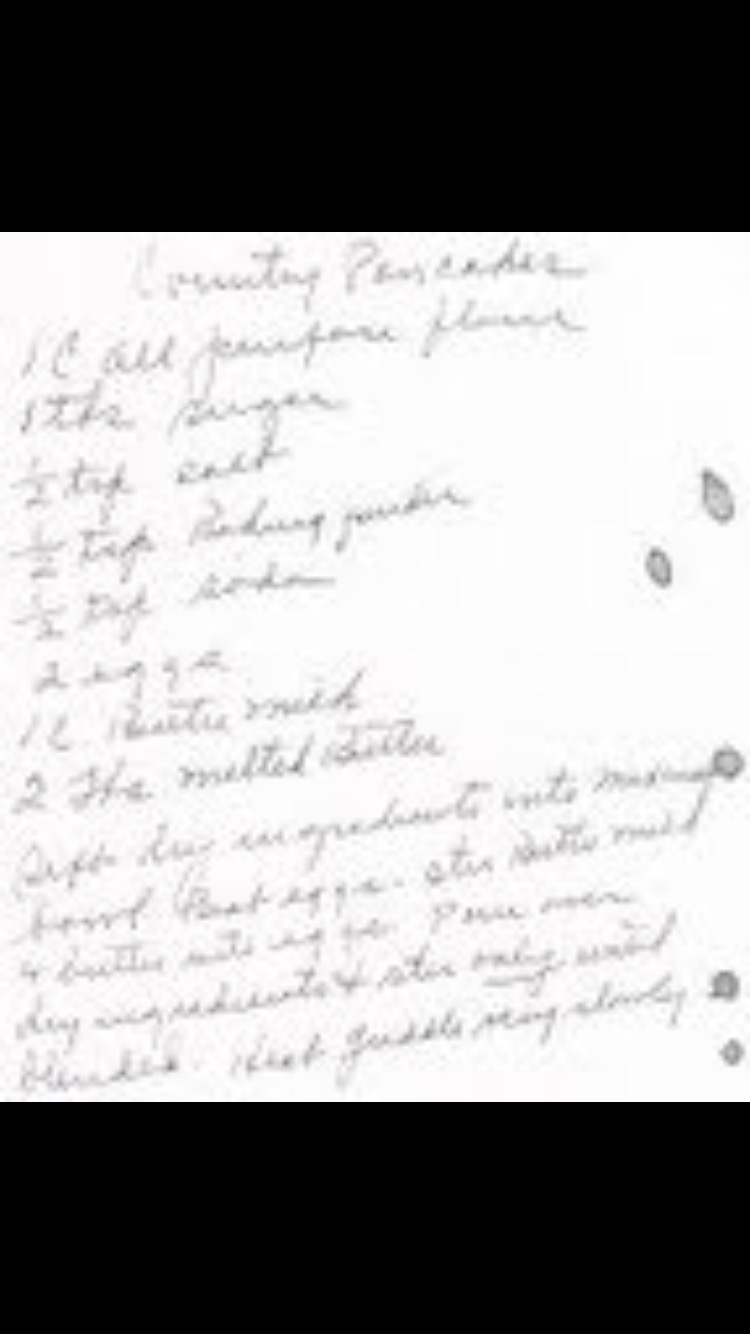 Country Pancakes
1 C all purpose flour
1 tbs sugar
½ tsp salt
½ tsp Baking powder
½ tsp soda
2 eggs
1 C Butter milk
2 Tbs melted Butter
Sift dry ingredients into mixing
bowl Beat eggs. stir Butter milk
& butter into eggs. Pour over
dry ingredients & stir only until
blended. Heat griddle very slowly